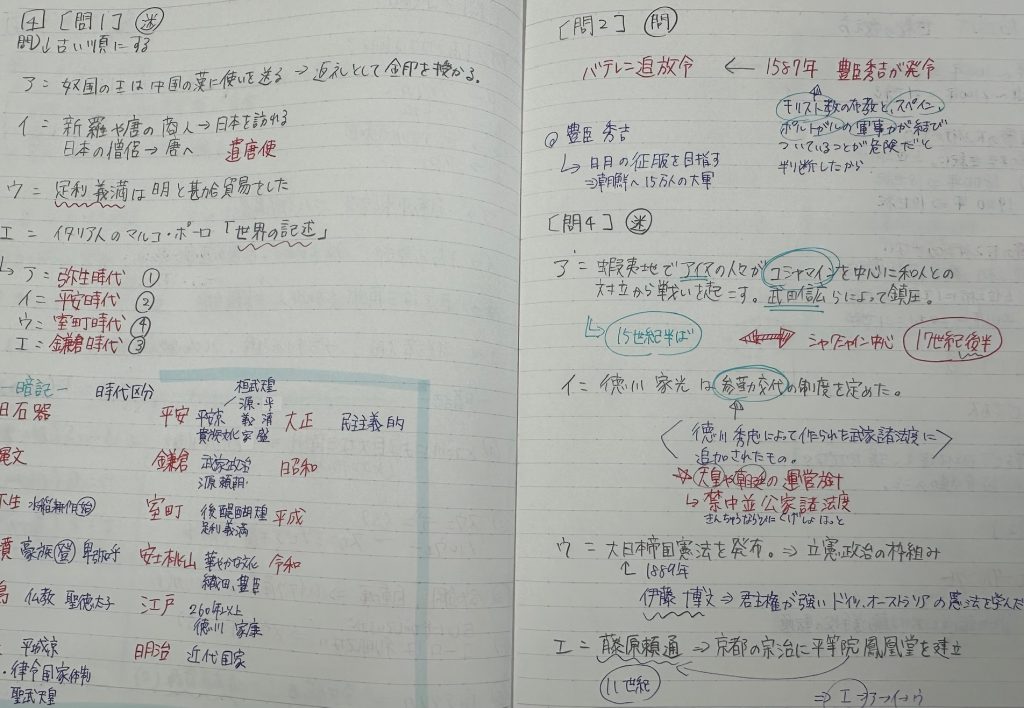 4 [問1] 迷
問)↓古い順にする
ア＝奴国の王は中国の漢に使いを送る→返礼として金印を授かる。
イ＝新羅や唐の商人→日本を訪れる
日本の僧侶→唐へ 遣唐使
ウ＝足利義満は明と勘合貿易をした
エ＝イタリア人のマルコ・ポーロ「世界の記述」
↳ア＝弥生時代 ①
イ＝平安時代 ②
ウ＝室町時代 ④
エ＝鎌倉時代 ③
ー暗記ー 時代区分
旧石器
縄文
弥生 水稲耕作 始
墳 豪族 登 卑弥呼
鳥 仏教 聖徳太子
平城京
・律令国家体制
聖武天皇
平安 平安京 貴族文化
桓武天皇
源・平
義 清
家 盛
鎌倉 武家政治
源頼朝
室町 後醍醐天皇
足利義満
安土桃山 華やかな文化
織田、豊臣
江戸 260年以上
徳川 家康
明治 近代国家
大正 民主主義的
昭和
平成
令和
[問2] 問
バテレン追放令 ← 1587年 豊臣秀吉が発令
キリスト教の布教と、スペイン、
ポルトガルの軍事力が結び
ついていることが危険だと
判断したから
◎豊臣 秀吉
↳明の征服を目指す
⇒朝鮮へ15万人の大軍
[問4] 迷
ア＝蝦夷地でアイヌの人々がコシャマインを中心に和人との
対立から戦いを起こす。武田信広らによって鎮圧。
↳15世紀半ば ⇔ シャクシャイン中心 17世紀後半
イ＝徳川 家光は参勤交代の制度を定めた。
〈徳川秀忠によって作られた武家諸法度に
追加されたもの。〉
☆天皇や朝廷の運営指針
↳禁中並公家諸法度
きんちゅうならびにくげしょはっと
ウ＝大日本帝国憲法を発布。⇒立憲政治の枠組み
↑1889年
伊藤 博文⇒君主権が強いドイツ、オーストラリアの憲法を学んだ
エ＝藤原頼通⇒京都の宗治に平等院鳳凰堂を建立
11世紀
⇒エ→ア→イ→ウ